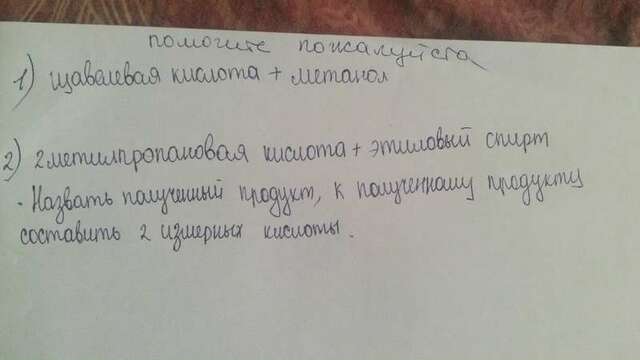 помогите пожалуйста
1) щавелевая кислота + метанол
2) 2метилпропановая кислота + этиловый спирт
- Назвать полученный продукт, к полученному продукту
составить 2 измерных кислоты.